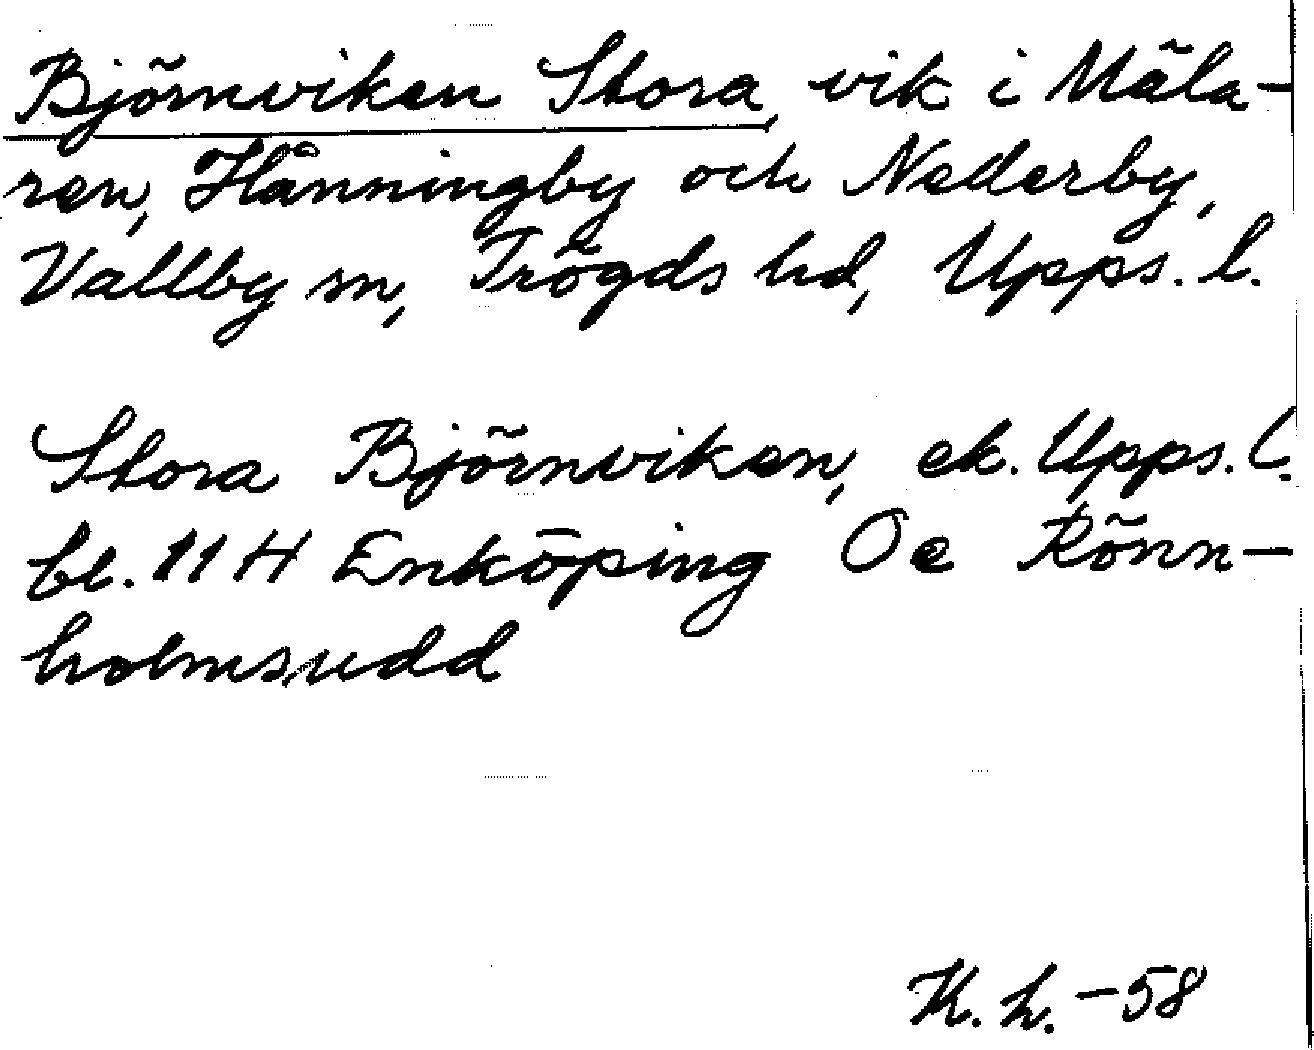 Björnviken Stora, vik i Mäla-
ren, Hånningby och Nederby,
Vallby sn, Trögds hd, Upps. l.
Stora Björnviken, ek. Upps. l.
bl. 11 H Enköping Oe Rönn-
holmsudd
K. L. -58